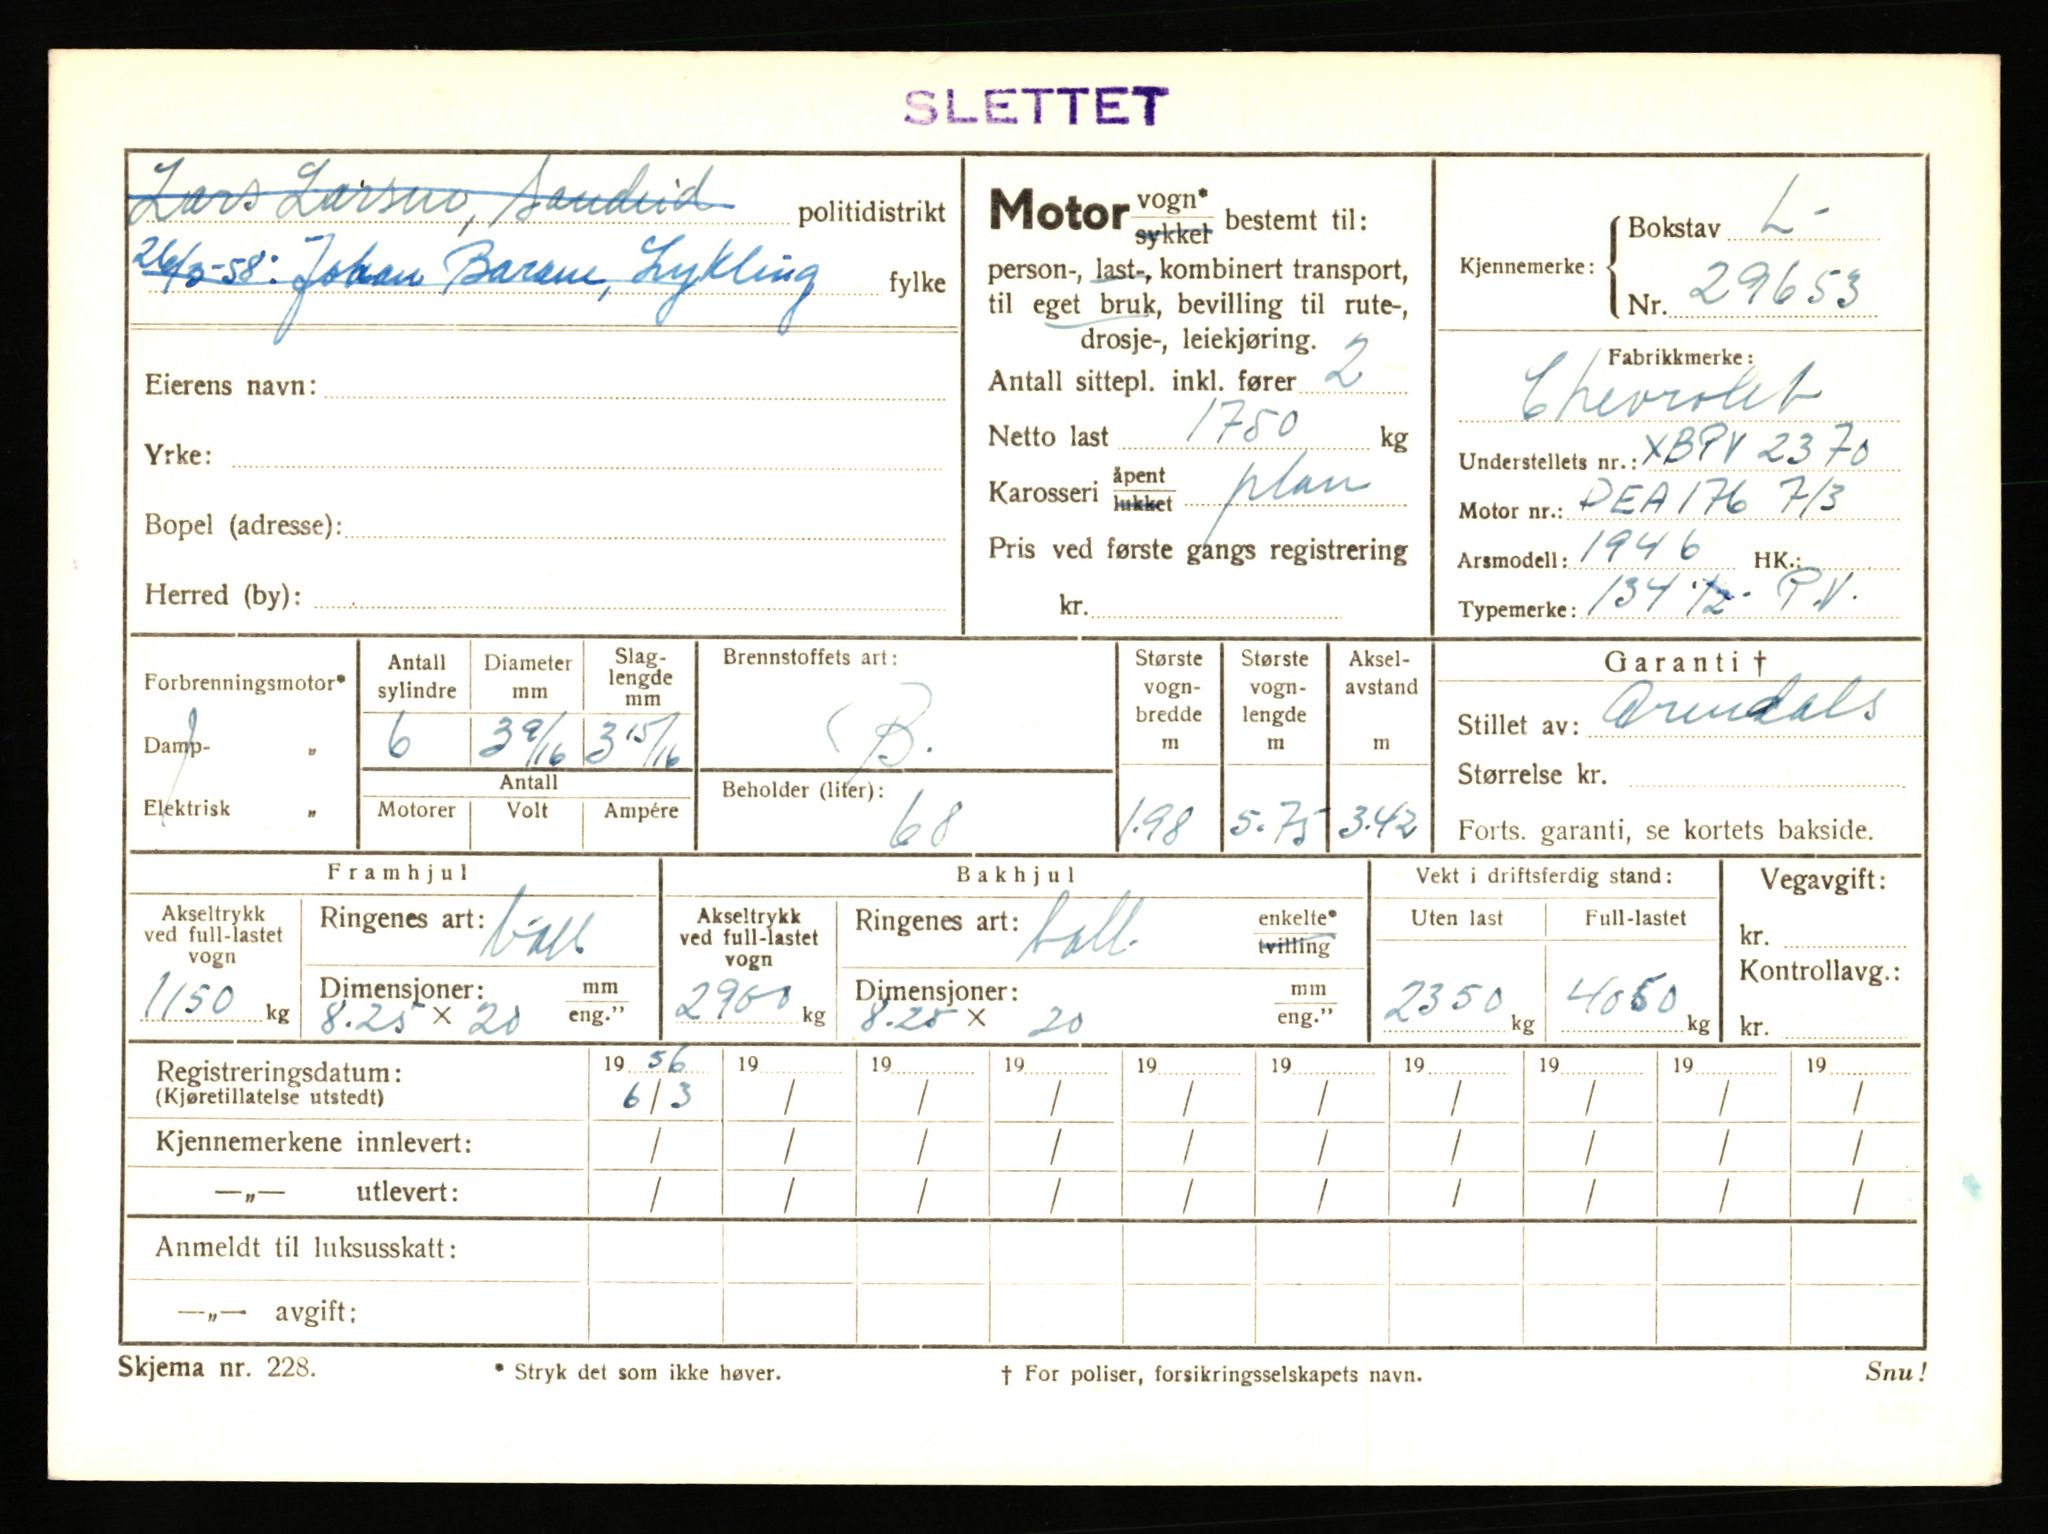 SLETTET
Lars Larsen, Sandeid politidistrikt
26/3-58: Johan Barane, Lykling fylke
Eierens navn:
Yrke:
Bopel (adresse):
Herred (by):
Motor vogn* sykkel bestemt til:
person-, last-, kombinert transport,
til eget bruk, bevilling til rute-,
drosje-, leiekjøring.
Antall sittepl. inkl. fører 2
Netto last 1750 kg
Karosseri åpent lukket plan
Pris ved første gangs registrering
kr.
Kjennemerke: Bokstav L-
Nr. 29653
Fabrikkmerke:
Chevrolet
Understellets nr.: XBPV 2370
Motor nr.: DEA176 713
Arsmodell: 1946 HK.:
Typemerke: 134 1/2. P.V.
Forbrenningsmotor*
Damp- „
Elektrisk „
Antall sylindre 6
Diameter mm 3 9/16
Slag-lengde mm 3 15/16
Antall
Motorer Volt Ampére
Brennstoffets art:
B.
Beholder (liter):
68
Største vogn-bredde m 1.98
Største vogn-lengde m 5.75
Aksel-avstand m 3.42
Garanti †
Stillet av: Arendals
Størrelse kr.
Forts. garanti, se kortets bakside.
Framhjul
Akseltrykk ved full-lastet vogn 1150 kg
Ringenes art: ball
Dimensjoner: mm eng."
8.25 × 20
Bakhjul
Akseltrykk ved full-lastet vogn 2900 kg
Ringenes art: ball. enkelte* tvilling
Dimensjoner: mm eng."
8.25 × 20
Vekt i driftsferdig stand:
Uten last Full-lastet
2350 kg 4050 kg
Vegavgift:
kr.
Kontrollavg.:
kr.
Registreringsdatum: 19 56 19 19 19 19 19 19 19 19 19
(Kjøretillatelse utstedt) 6/3 / / / / / / / / /
Kjennemerkene innlevert: / / / / / / / / / /
—„— utlevert: / / / / / / / / / /
Anmeldt til luksusskatt:
—„— avgift:
Skjema nr. 228. * Stryk det som ikke høver. † For poliser, forsikringsselskapets navn. Snu!